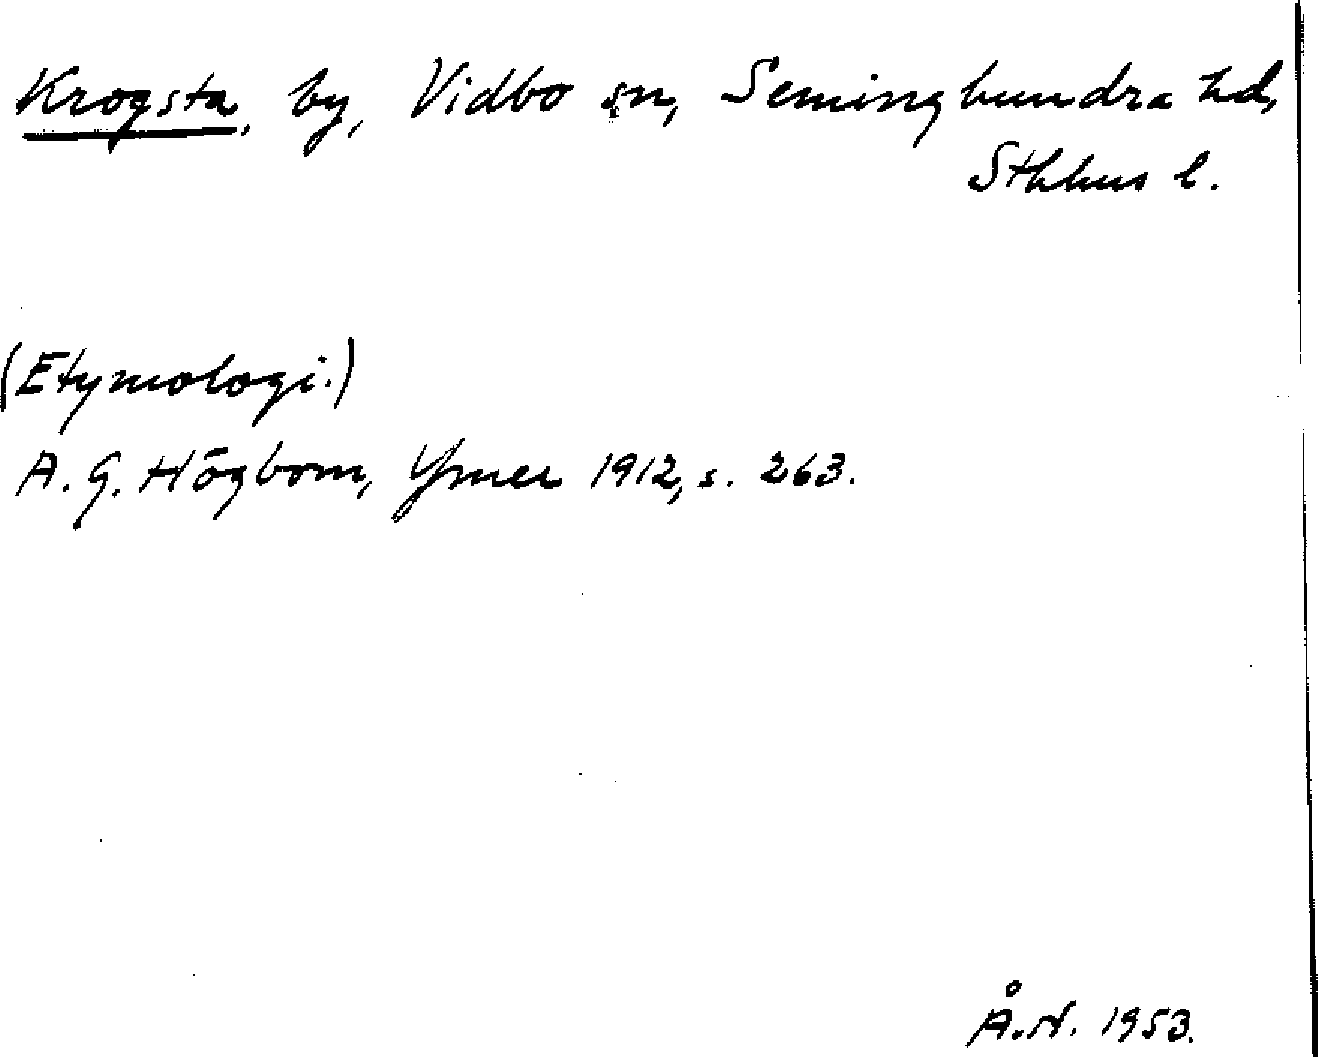 Krogsta, by, Vidbo sn, Seminghundra hd,
Sthlms l.
(Etymologi.)
A. G. Högbom, Ymer 1912, s. 263.
Å. N. 1953.